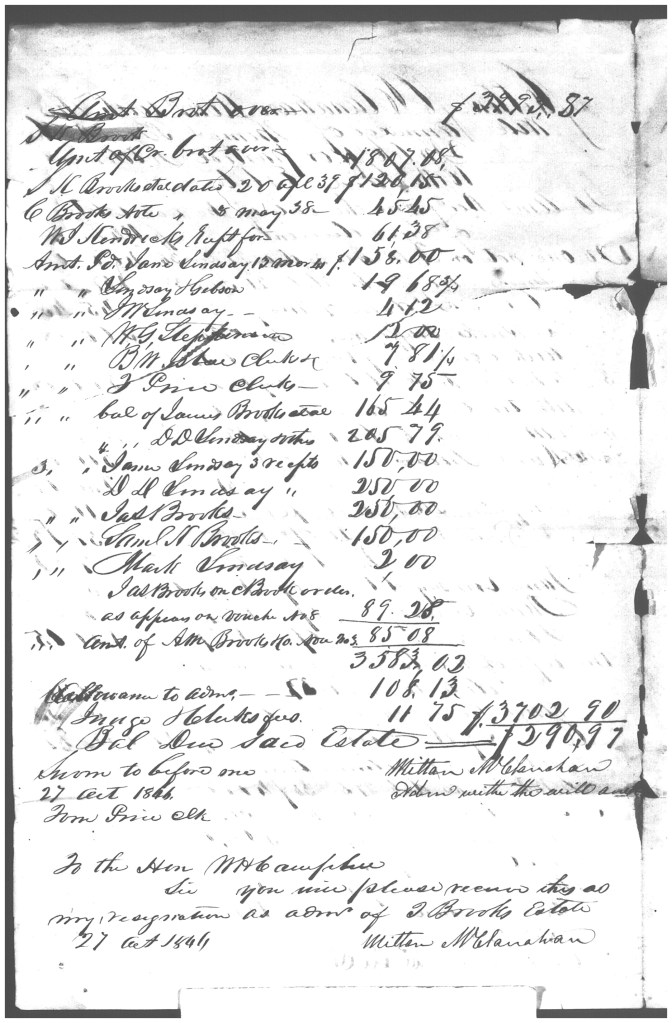 Amt Brot over $ 3993,87
Amt of Cr. brot over $1807.08
S N Brooks date 20 apl 39 $120.15
C Brooks Note " 8 may 38 45 45
W J Kendricks Rcpt for 61,38
Amt. Pd. Jane Lindsay 13 mar 41 $158.00
" " Lindsay & Gibson 19 68 3/4
" " J W Lindsay 4 12
" " W. G. Stephenson 12 00
" " B W Clerk 7 81 1/4
" " T Price Clerk 9 75
" " bal of James Brooks 165 44
" " D D Lindsay notes 205 79
3, " Jane Lindsay 3 recpts 150,00
D D Lindsay " 250 00
" " Jas Brooks 250,00
" " Saml N Brooks 150,00
" " Mark Lindsay 2,00
Jas Brooks on C Brook order
as appears on Vouche No 8 89.28
" " amt. of A M Brooks 85 08
3583,02
Allowance to admr, 108,13
Judge & Clerks fees. 11 75 $3702 90
Bal Due Said Estate $290,97
Sworn to before me Milton McClanahan
27 Oct 1846 Adm with the will
Tom Price Clk
To the Hon W H Campbell
Sir you will please receive this as
my, resignation as admr of T. Brooks Estate
27 Oct 1846 Milton McClanahan